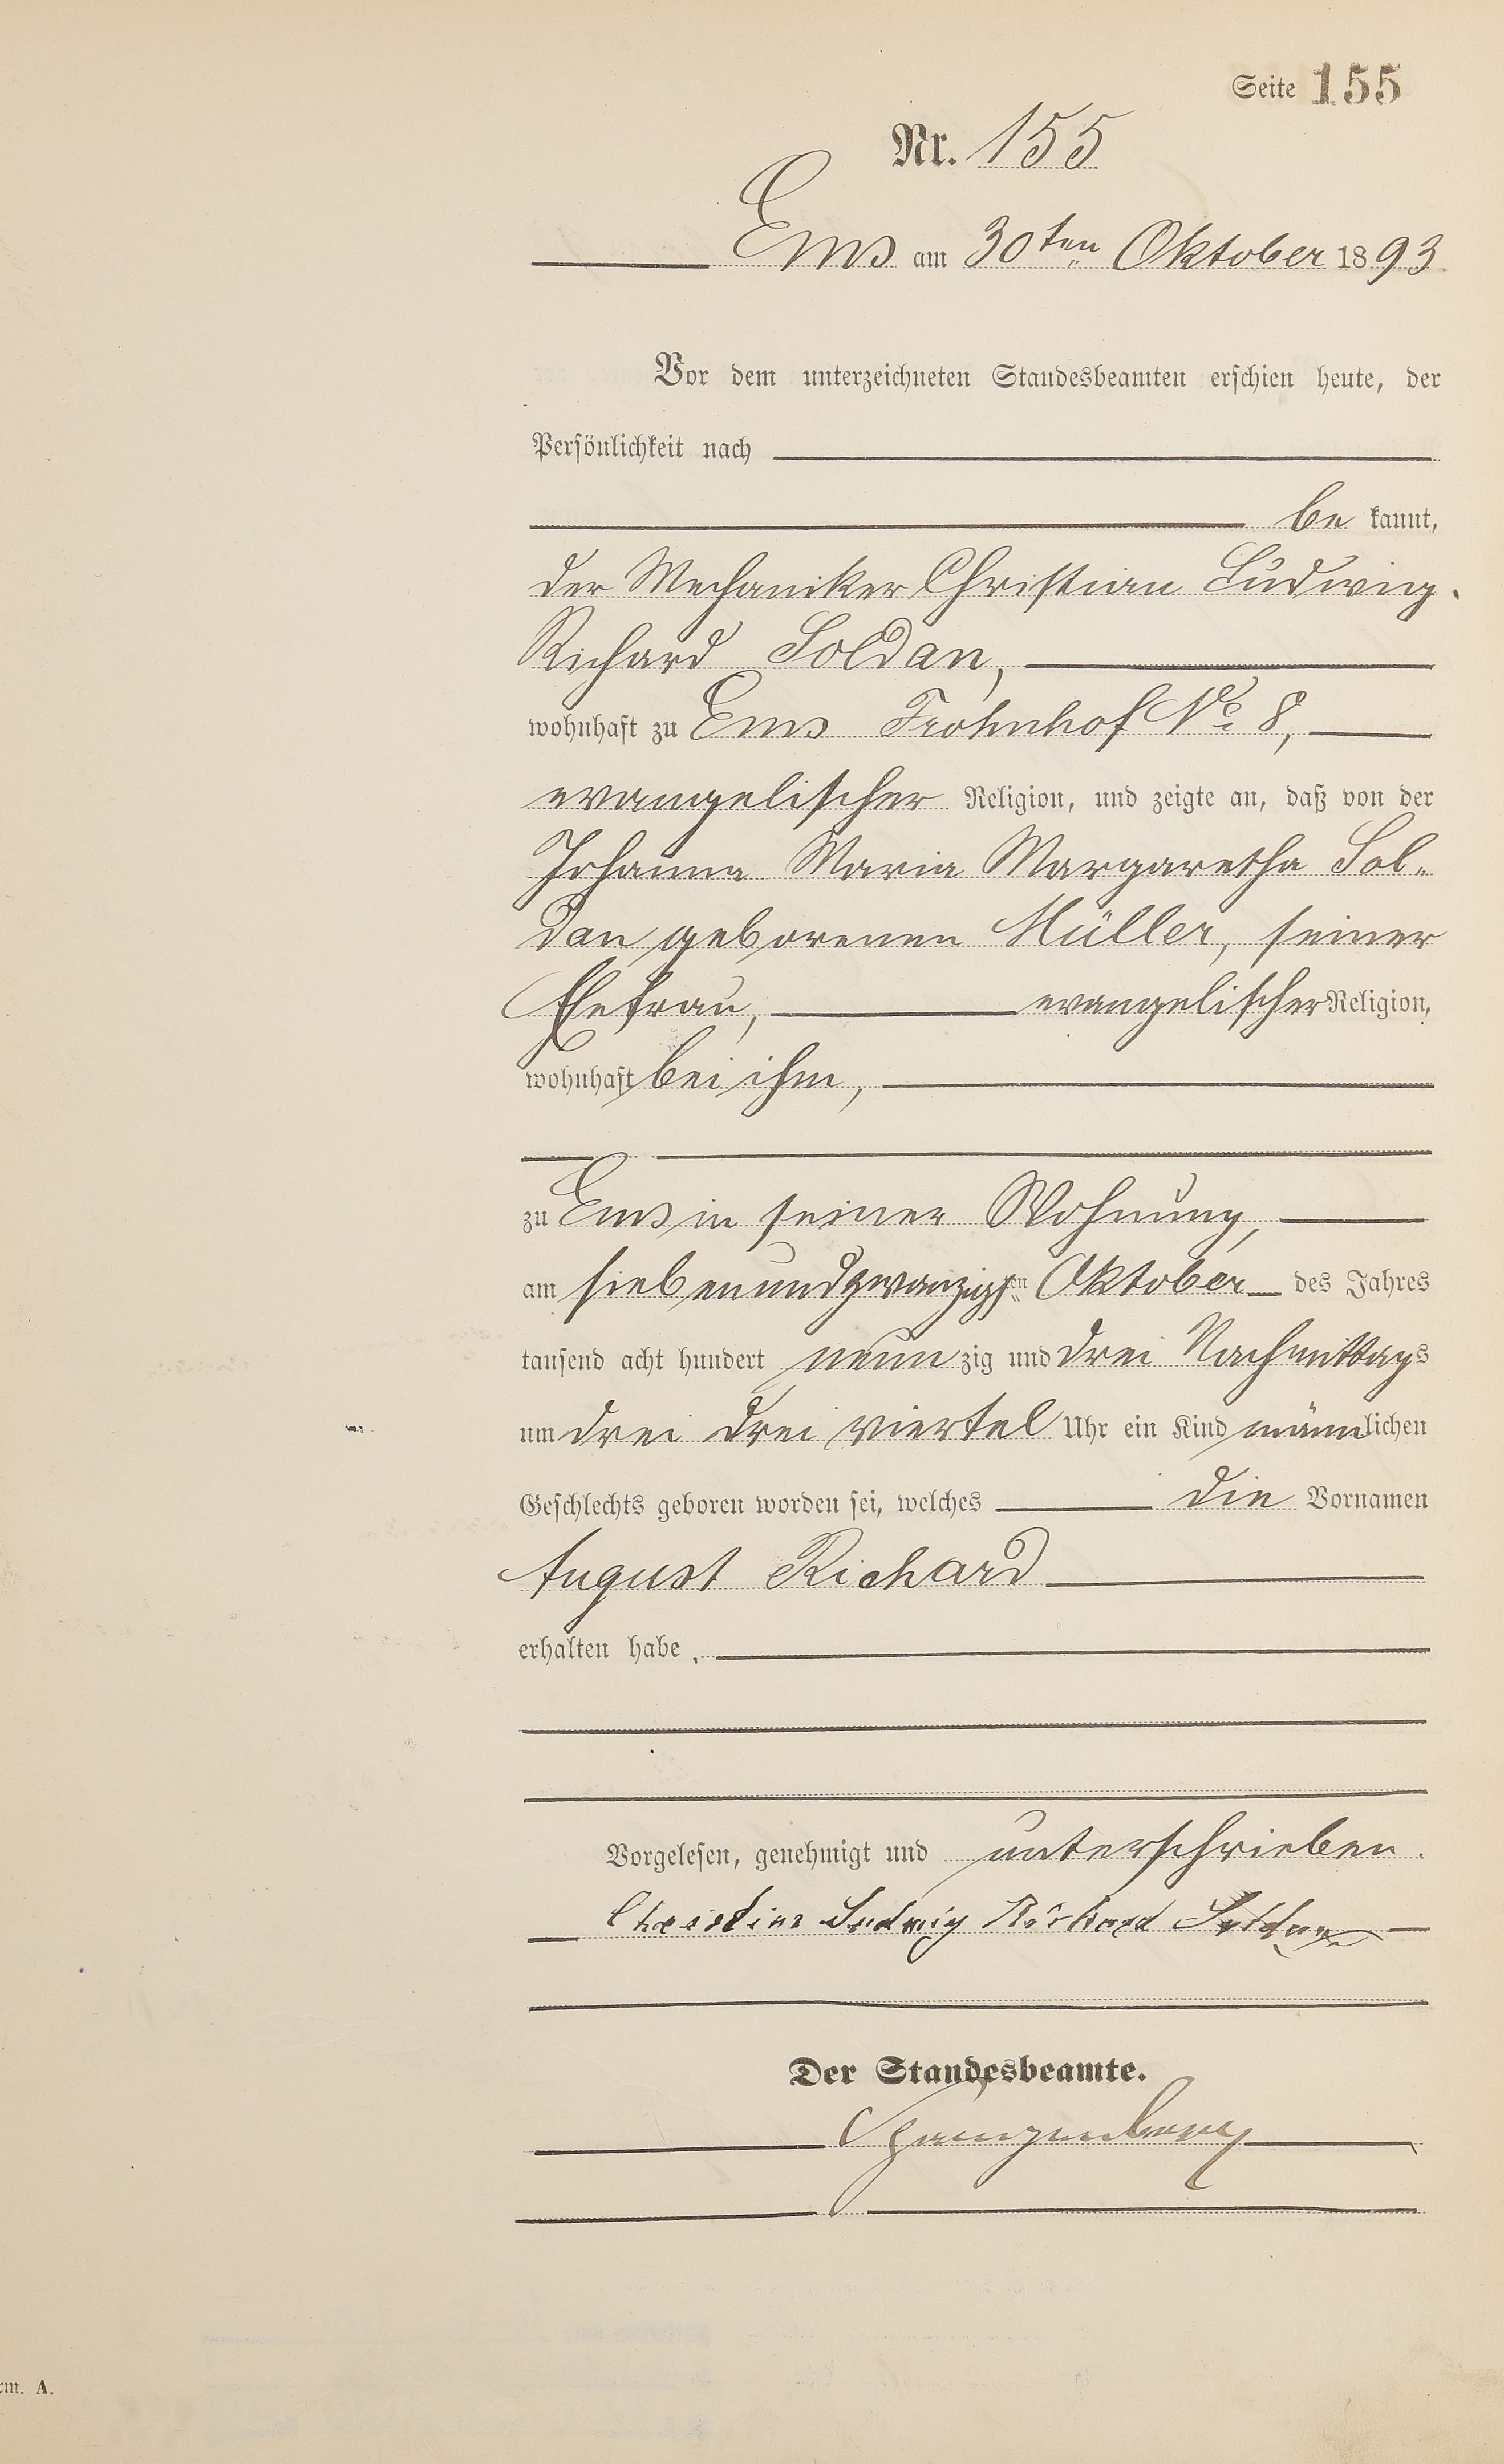 Seite 155
Nr. 155
Ems am 30ten Oktober 1893
Vor dem unterzeichneten Standesbeamten erschien heute, der
Persönlichkeit nach
bekannt,
der Mechaniker Christian Ludwig
Richard Soldan,
wohnhaft zu Ems Frohnhof No 8,
evangelischer Religion, und zeigte an, daß von der
Johanna Maria Margaretha Sol-
dan geborenen Müller, seiner
Ehefrau, evangelischer Religion,
wohnhaft bei ihm,
zu Ems in seiner Wohnung,
am siebenundzwanzigsten Oktober des Jahres
tausend acht hundert neunzig und drei Nachmittags
um drei drei viertel Uhr ein Kind männlichen
Geschlechts geboren worden sei, welches die Vornamen
August Richard
erhalten habe.
Vorgelesen, genehmigt und unterschrieben.
Christian Ludwig Richard Soldan
Der Standesbeamte.
Spangenberg
rm. A.